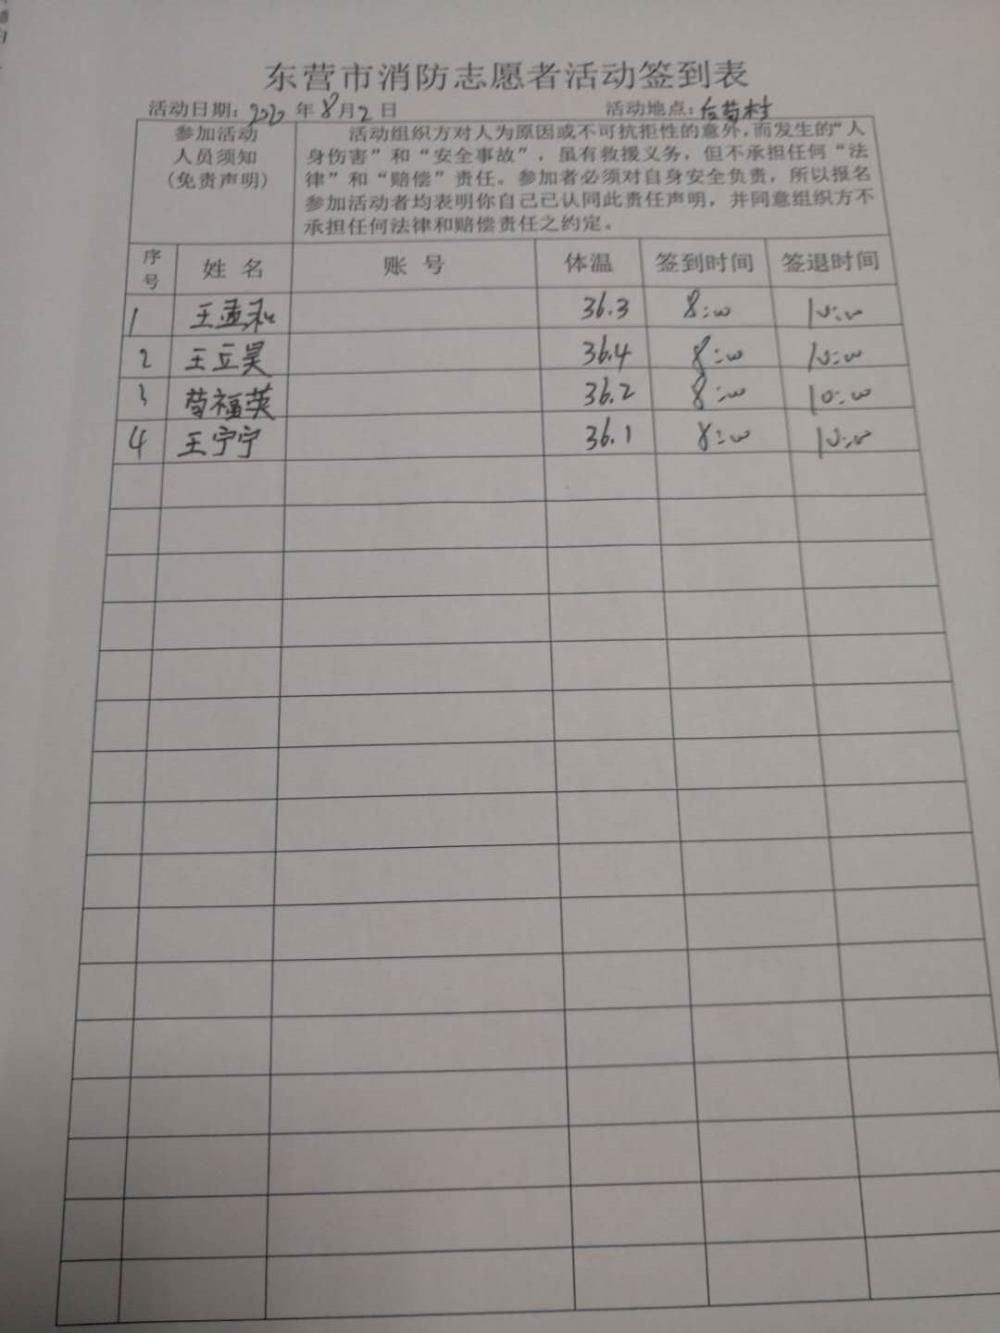 东营市消防志愿者活动签到表
活动日期：2020年8月2日 活动地点：后苟村
参加活动
人员须知
（免责声明）
活动组织方对人为原因或不可抗拒性的意外，而发生的“人
身伤害”和“安全事故”，虽有救援义务，但不承担任何“法
律”和“赔偿”责任。参加者必须对自身安全负责，所以报名
参加活动者均表明你自己已认同此责任声明，并同意组织方不
承担任何法律和赔偿责任之约定。
序号 姓名 账号 体温 签到时间 签退时间
1 王孟和 36.3 8:00 10:00
2 王立昊 36.4 8:00 10:00
3 苟福英 36.2 8:00 10:00
4 王宁宁 36.1 8:00 10:00